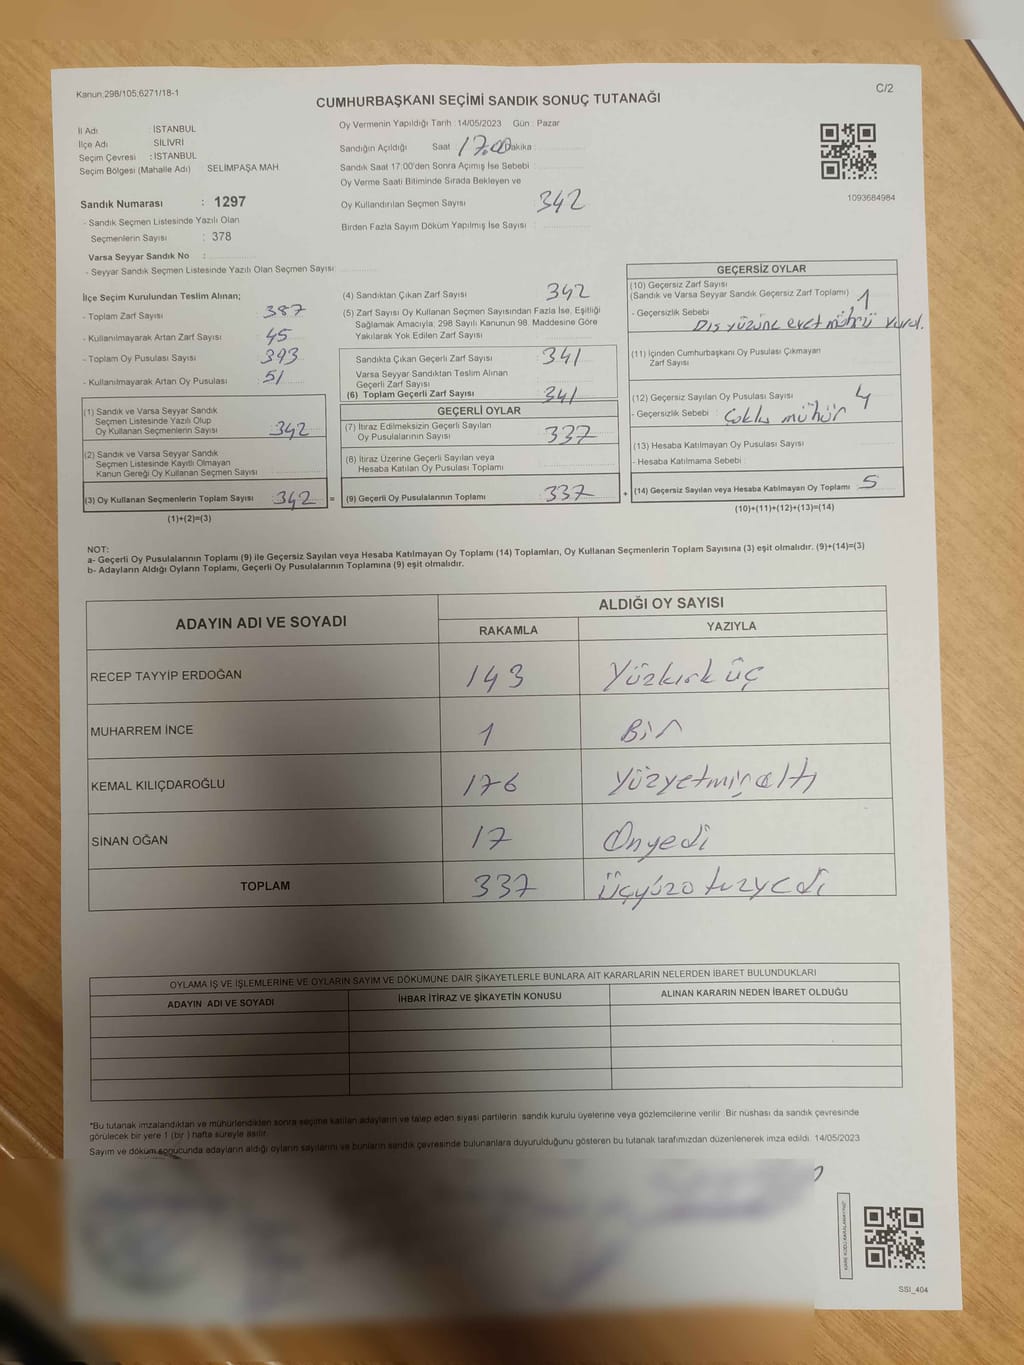 Kanun:298/105;6271/18-1
C/2
CUMHURBAŞKANI SEÇİMİ SANDIK SONUÇ TUTANAĞI
İl Adı : İSTANBUL
İlçe Adı SİLİVRİ
Seçim Çevresi : İSTANBUL
Seçim Bölgesi (Mahalle Adı) SELİMPAŞA MAH.
Sandık Numarası : 1297
- Sandık Seçmen Listesinde Yazılı Olan
Seçmenlerin Sayısı : 378
Varsa Seyyar Sandık No :
- Seyyar Sandık Seçmen Listesinde Yazılı Olan Seçmen Sayısı
Oy Vermenin Yapıldığı Tarih :14/05/2023 Gün : Pazar
Sandığın Açıldığı Saat 17.00 Dakika :
Sandık Saat 17:00'den Sonra Açılmış İse Sebebi :
Oy Verme Saati Bitiminde Sırada Bekleyen ve
Oy Kullandırılan Seçmen Sayısı : 342
Birden Fazla Sayım Döküm Yapılmış İse Sayısı :
1093684984
İlçe Seçim Kurulundan Teslim Alınan;
- Toplam Zarf Sayısı : 387
- Kullanılmayarak Artan Zarf Sayısı : 45
- Toplam Oy Pusulası Sayısı : 393
- Kullanılmayarak Artan Oy Pusulası : 51
(1) Sandık ve Varsa Seyyar Sandık
Seçmen Listesinde Yazılı Olup
Oy Kullanan Seçmenlerin Sayısı : 342
(2) Sandık ve Varsa Seyyar Sandık
Seçmen Listesinde Kayıtlı Olmayan
Kanun Gereği Oy Kullanan Seçmen Sayısı :
(3) Oy Kullanan Seçmenlerin Toplam Sayısı : 342 =
(1)+(2)=(3)
(4) Sandıktan Çıkan Zarf Sayısı : 342
(5) Zarf Sayısı Oy Kullanan Seçmen Sayısından Fazla İse, Eşitliği
Sağlamak Amacıyla; 298 Sayılı Kanunun 98. Maddesine Göre
Yakılarak Yok Edilen Zarf Sayısı :
Sandıkta Çıkan Geçerli Zarf Sayısı : 341
Varsa Seyyar Sandıktan Teslim Alınan
Geçerli Zarf Sayısı
(6) Toplam Geçerli Zarf Sayısı : 341
GEÇERLİ OYLAR
(7) İtiraz Edilmeksizin Geçerli Sayılan
Oy Pusulalarının Sayısı : 337
(8) İtiraz Üzerine Geçerli Sayılan veya
Hesaba Katılan Oy Pusulası Toplamı :
(9) Geçerli Oy Pusulalarının Toplamı : 337 +
GEÇERSİZ OYLAR
(10) Geçersiz Zarf Sayısı
(Sandık ve Varsa Seyyar Sandık Geçersiz Zarf Toplamı) 1
- Geçersizlik Sebebi : Dış yüzüne evet mührü vurul.
(11) İçinden Cumhurbaşkanı Oy Pusulası Çıkmayan
Zarf Sayısı
(12) Geçersiz Sayılan Oy Pusulası Sayısı : 4
- Geçersizlik Sebebi : Çoklu mühür
(13) Hesaba Katılmayan Oy Pusulası Sayısı :
- Hesaba Katılmama Sebebi :
(14) Geçersiz Sayılan veya Hesaba Katılmayan Oy Toplamı 5
(10)+(11)+(12)+(13)=(14)
NOT:
a- Geçerli Oy Pusulalarının Toplamı (9) ile Geçersiz Sayılan veya Hesaba Katılmayan Oy Toplamı (14) Toplamları, Oy Kullanan Seçmenlerin Toplam Sayısına (3) eşit olmalıdır. (9)+(14)=(3)
b- Adayların Aldığı Oyların Toplamı, Geçerli Oy Pusulalarının Toplamına (9) eşit olmalıdır.
ADAYIN ADI VE SOYADI
ALDIĞI OY SAYISI
RAKAMLA YAZIYLA
RECEP TAYYİP ERDOĞAN 143 Yüzkırk üç
MUHARREM İNCE 1 Bir
KEMAL KILIÇDAROĞLU 176 Yüzyetmiş altı
SİNAN OĞAN 17 Onyedi
TOPLAM 337 Üçyüzotuzyedi
OYLAMA İŞ VE İŞLEMLERİNE VE OYLARIN SAYIM VE DÖKÜMÜNE DAİR ŞİKAYETLERLE BUNLARA AİT KARARLARIN NELERDEN İBARET BULUNDUKLARI
ADAYIN ADI VE SOYADI İHBAR İTİRAZ VE ŞİKAYETİN KONUSU ALINAN KARARIN NEDEN İBARET OLDUĞU
*Bu tutanak imzalandıktan ve mühürlendikten sonra seçime katılan adayların ve talep eden siyasi partilerin sandık kurulu üyelerine veya gözlemcilerine verilir. Bir nüshası da sandık çevresinde
görülecek bir yere 1 (bir) hafta süreyle asılır.
Sayım ve döküm sonucunda adayların aldığı oyların sayılarını ve bunların sandık çevresinde bulunanlara duyurulduğunu gösteren bu tutanak tarafımızdan düzenlenerek imza edildi. 14/05/2023
SSI_404